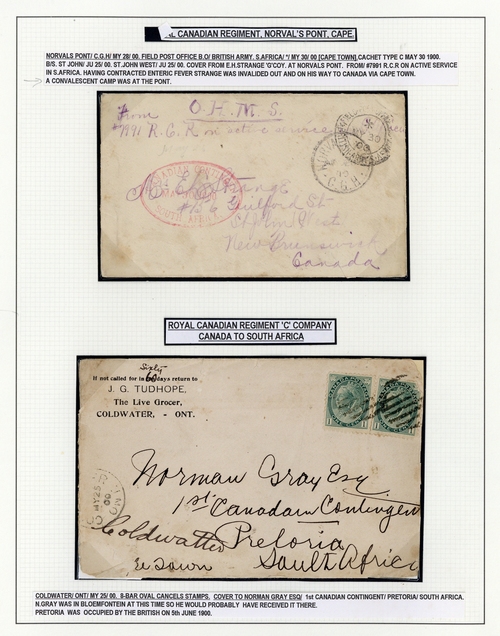 CANADIAN REGIMENT, NORVAL'S PONT, CAPE.
NORVALS PONT/ C.G.H/ MY 28/ 00. FIELD POST OFFICE B.O/ BRITISH ARMY. S.AFRICA/ */ MY 30/ 00 [CAPE TOWN].CACHET TYPE C MAY 30 1900.
B/S. ST JOHN/ JU 25/ 00. ST.JOHN WEST/ JU 25/ 00. COVER FROM E.H.STRANGE 'G'COY. AT NORVALS PONT. FROM/ #7991 R.C.R ON ACTIVE SERVICE
IN S.AFRICA. HAVING CONTRACTED ENTERIC FEVER STRANGE WAS INVALIDED OUT AND ON HIS WAY TO CANADA VIA CAPE TOWN.
A CONVALESCENT CAMP WAS AT THE PONT.
O.H.M.S.
From
R.C.R on active service
CANADIAN CONTINGENT
SOUTH AFRICA
MY 30
00
C.G.H.
Strange
Guilford St
St John West
New Brunswick
Canada
ROYAL CANADIAN REGIMENT 'C' COMPANY
CANADA TO SOUTH AFRICA
Sixty
If not called for in 60 days return to
J. G. TUDHOPE,
The Live Grocer,
COLDWATER, - ONT.
MY 25
00
Norman Gray Esq
1st Canadain Contingen
Coldwater Pretoria
South Africa
COLDWATER/ ONT/ MY 25/ 00. 8-BAR OVAL CANCELS STAMPS. COVER TO NORMAN GRAY ESQ/ 1st CANADIAN CONTINGENT/ PRETORIA/ SOUTH AFRICA.
N.GRAY WAS IN BLOEMFONTEIN AT THIS TIME SO HE WOULD PROBABLY HAVE RECEIVED IT THERE.
PRETORIA WAS OCCUPIED BY THE BRITISH ON 5th JUNE 1900.